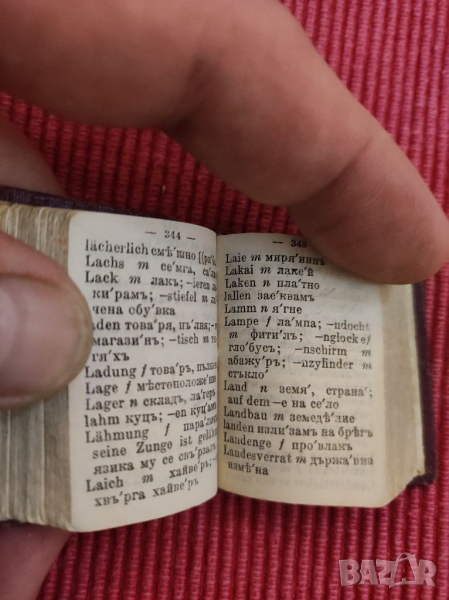 — 344 —
lächerlich смѣ'шно
Lachs m се'мга,
Lack m лакъ; –ieren
ки'рамъ; –stiefel m
чена обу'вка
магази'нъ; –tisch m
Ladung f това'ръ,
Lage f мѣстоположе'ние
Lager n складъ,
lahm куцъ; –en куц'амъ
Lähmung f
seine Zunge ist
языка му се
Laich m хайве'ръ;
хвъ'рга хайве'ръ
— 345
Laie m миря'нинъ
Lakai m лаке'й
Laken n пла'тно
lallen зае'квамъ
Lamm n я'гне
Lampe f ла'мпа; –ndocht
m фити'лъ; –nglocke f
гло'бусъ; –nschirm m
абажу'ръ; –nzylinder m
стъкло'
Land n земя', страна';
auf dem –e на се'ло
Landbau m земедѣ'лие
landen изли'замъ на брѣгъ
Landenge f про'влакъ
Landesverrat m държа'вна
измѣ'на
BAZAR